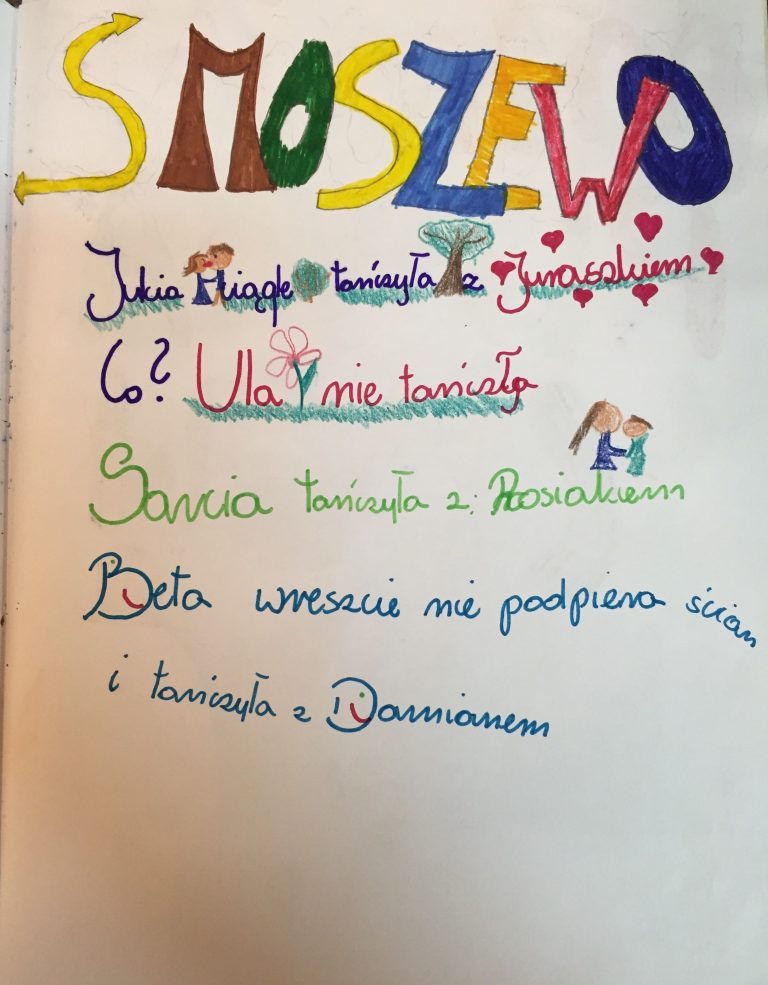 SMOSZEWO
Julcia ciągle tańczyła z Juraszkiem
Co? Ula nie tańczyła
Sarcia tańczyła z: Rosiakiem
Beta wreszcie nie podpiera ścian
i tańczyła z Damianem